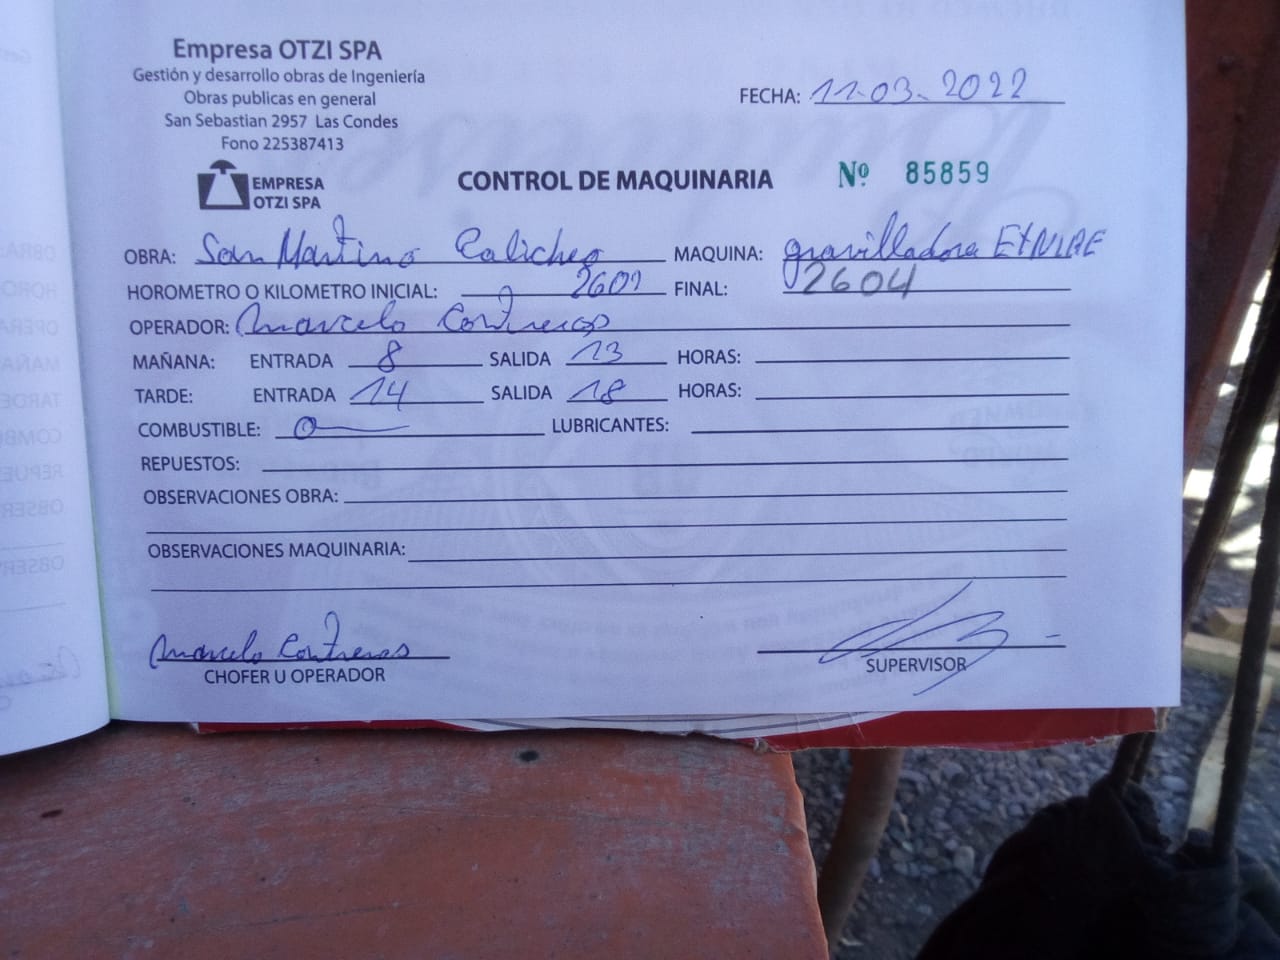 Empresa OTZI SPA
Gestión y desarrollo obras de Ingeniería
Obras publicas en general
San Sebastian 2957 Las Condes
Fono 225387413
FECHA: 11-03-2022
EMPRESA
OTZI SPA
CONTROL DE MAQUINARIA Nº 85859
OBRA: San Martino Calicheo MAQUINA: gravilladora
HOROMETRO O KILOMETRO INICIAL: 2601 FINAL: 2604
OPERADOR: Marcelo Contreras
MAÑANA: ENTRADA 8 SALIDA 13 HORAS:
TARDE: ENTRADA 14 SALIDA 18 HORAS:
COMBUSTIBLE: 0 LUBRICANTES:
REPUESTOS:
OBSERVACIONES OBRA:
OBSERVACIONES MAQUINARIA:
Marcelo Contreras
CHOFER U OPERADOR
SUPERVISOR